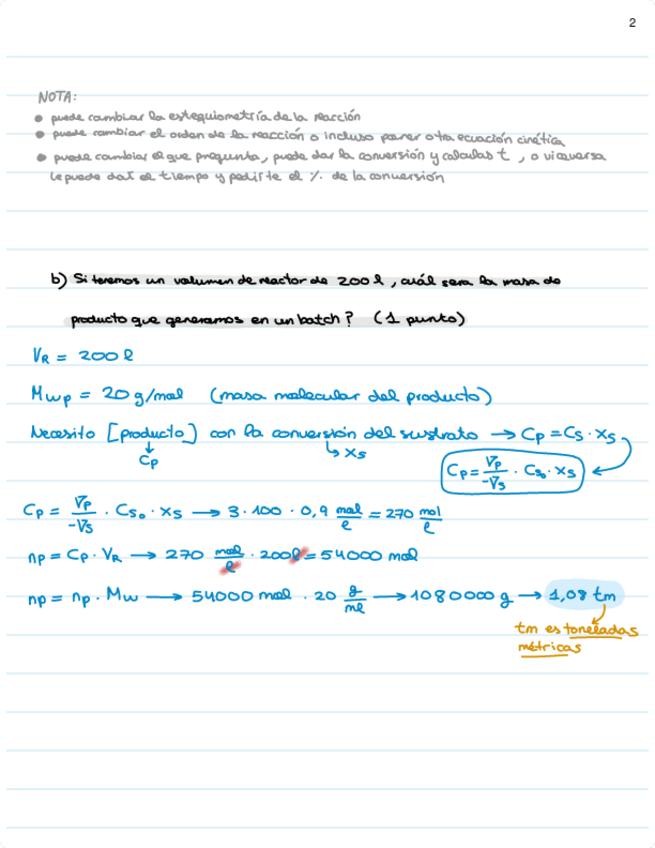 2
NOTA:
• puede cambiar la estequiometría de la reacción
• puede cambiar el orden de la reacción o incluso poner otra ecuación cinética
• puede cambiar el que pregunta, puede dar la conversión y calculas t, o viceversa
te puede dar el tiempo y pedirte el % de la conversión
b) Si tenemos un volumen de reactor de 200 l, cuál sera la masa de
producto que generamos en un batch? (1 punto)
VR = 200 l
Mwp = 20 g/mol (masa molecular del producto)
Necesito [producto] con la conversión del sustrato → Cp = Cs · Xs
↓ Cp ↳ Xs
Cp = Vp/-Vs · Cs₀ · Xs
Cp = Vp/-Vs · Cs₀ · Xs → 3 · 100 · 0,9 mol/l = 270 mol/l
np = Cp · VR → 270 mol/l · 200l = 54000 mol
np = np · Mw → 54000 mol · 20 g/ml → 1080000 g → 1,08 tm
tm es toneladas
métricas